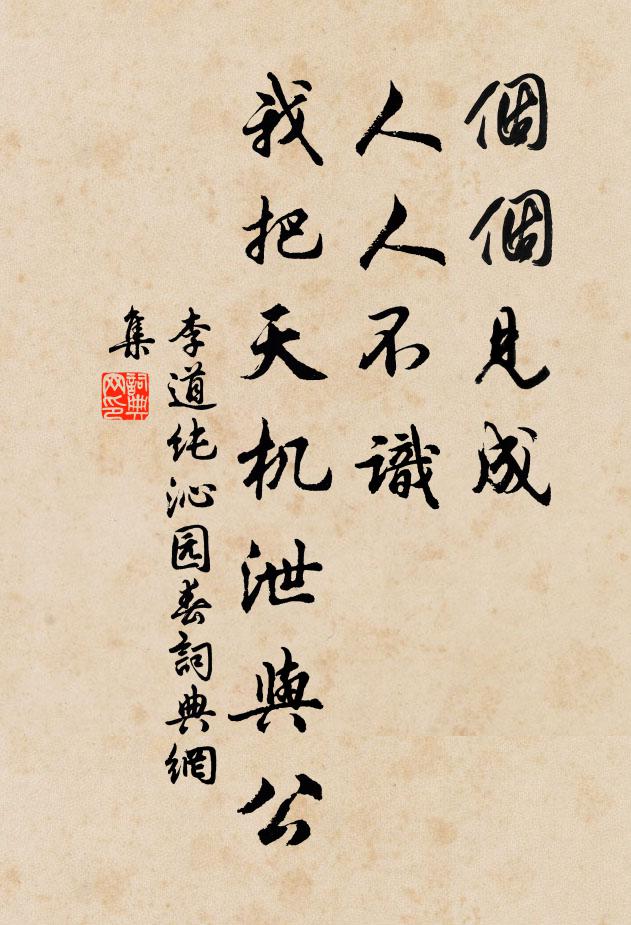 個個見成
人人不識
我把天机泄與公
李道純沁园春詞典網
集
詞典
网印